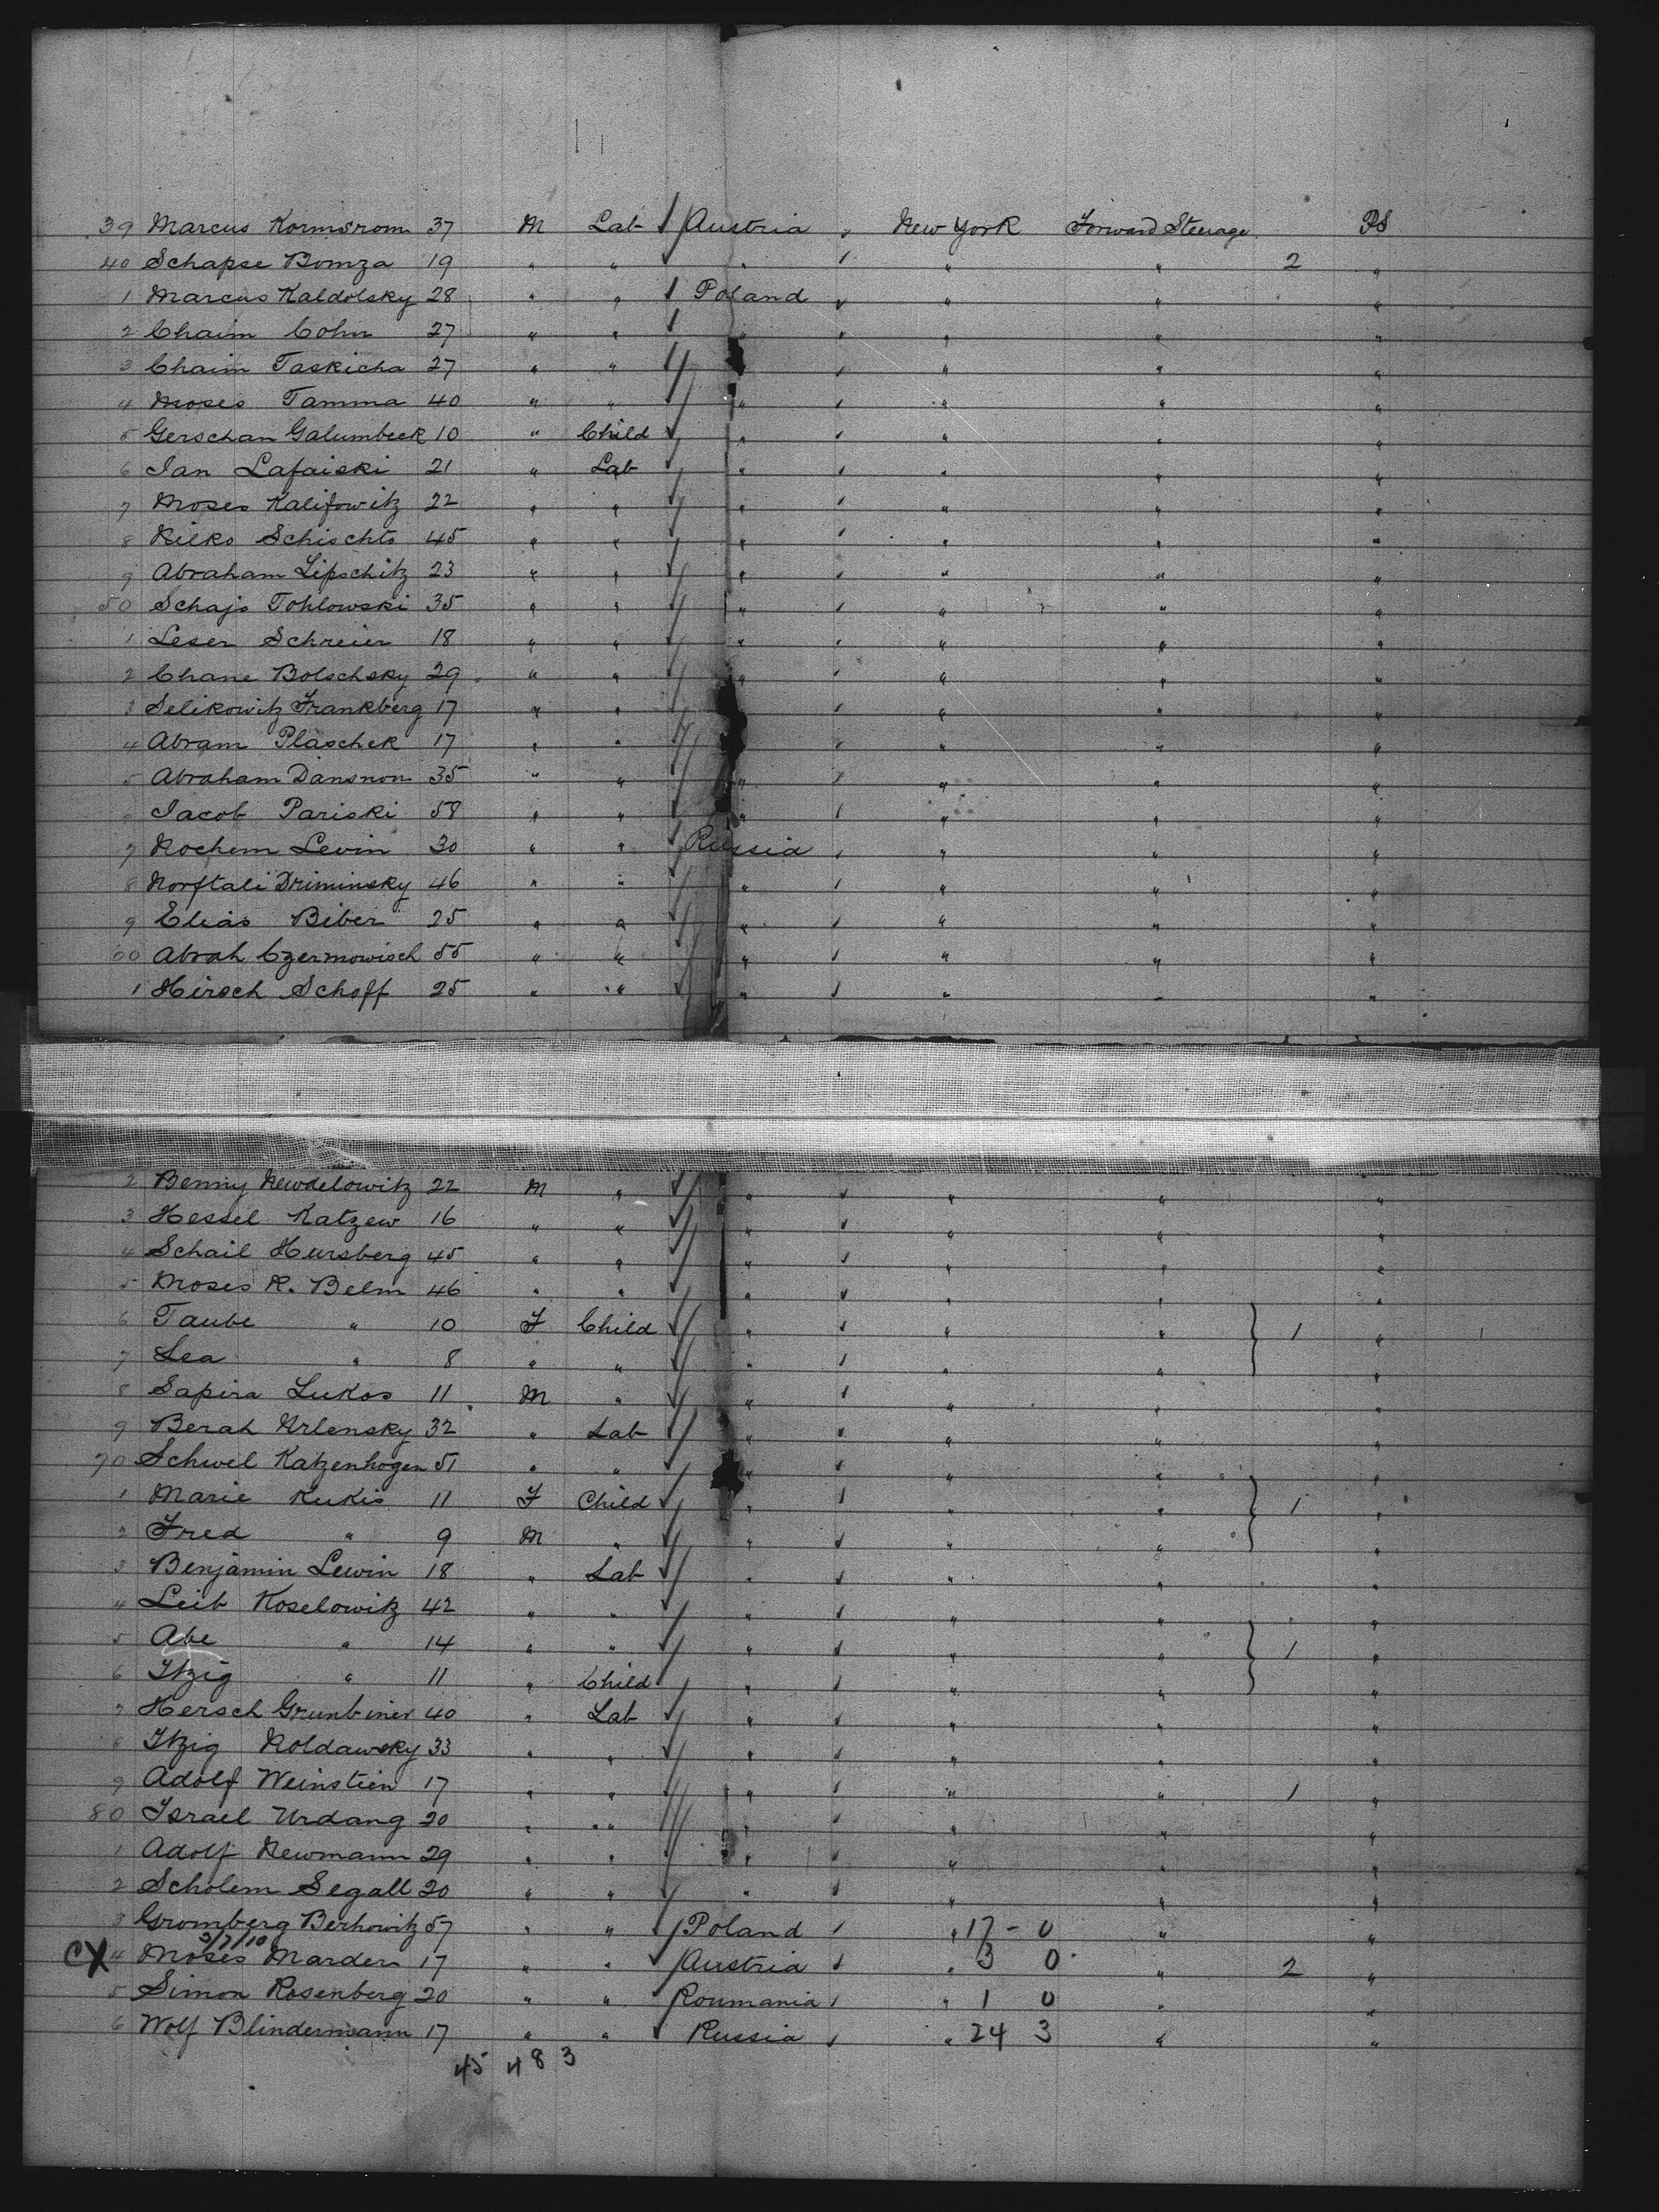 39 Marcus Kormsrom 37 M Lab Austria " New York Forward Steerage PS
40 Schapse Bomza 19 " " " " " 2 "
1 Marcus Kaldolsky 28 " " Poland " " "
2 Chaim Cohn 27 " " " " " "
3 Chaim Taskicha 27 " " " " " "
4 Moses Tamma 40 " " " " " "
5 Gerschan Galumbeck 10 " Child " " " "
6 Jan Lafaiski 21 " Lab " " " "
7 Moses Kalifowitz 22 " " " " " "
8 Rilko Schischto 45 " " " " " "
9 Abraham Lipschitz 23 " " " " " "
50 Schajo Tohlowski 35 " " " " " "
1 Leser Schreier 18 " " " " " "
2 Chane Bolschsky 29 " " " " " "
3 Selikowitz Frankberg 17 " " " " " "
4 Abram Plaschek 17 " " " " "
5 Abraham Dansnon 35 " " " " " "
6 Jacob Pariski 58 " " " " " "
7 Nochem Levin 30 " " Russia " " "
8 Norftali Driminsky 46 " " " " " "
9 Elias Biber 25 " " " " " "
60 Abrah Czermowisch 55 " " " " " "
1 Hirsch Schoff 25 " " " " " "
2 Benny Newdelowitz 22 M " " " " "
3 Hessel Katzew 16 " " " " " "
4 Schail Hursberg 45 " " " " " "
5 Moses R. Belm 46 " " " " " "
6 Taube " 10 F Child " " " 1 "
7 Lea " 8 " " " " " "
8 Sapira Lukos 11 M " " " " "
9 Berah Urlensky 32 " Lab " " " "
70 Schwel Katzenhogen 51 " " " " " "
1 Marie Kukis 11 F Child " " " 1 "
2 Fred " 9 M " " " " "
3 Benjamin Lewin 18 " Lab " " " "
4 Leib Koselowitz 42 " " " " " "
5 Abe " 14 " " " " " 1 "
6 Itzig " 11 " Child " " " "
7 Hersch Grunbiner 40 " Lab " " " "
8 Itzig Noldawsky 33 " " " " " "
9 Adolf Weinstien 17 " " " " " 1 "
80 Israel Urdang 20 " " " " " "
1 Adolf Newmann 29 " " " " "
2 Scholem Segall 20 " " " " " "
3 Gromberg Berhowitz 57 " " Poland " 17 - 0 " "
3/7/10
CX 4 Moses Marder 17 " " Austria " 3 0 " 2 "
5 Simon Rosenberg 20 " " Roumania " 1 0 " "
6 Wolf Blindermann 17 " " Russia " 24 3 " "
45 48 3